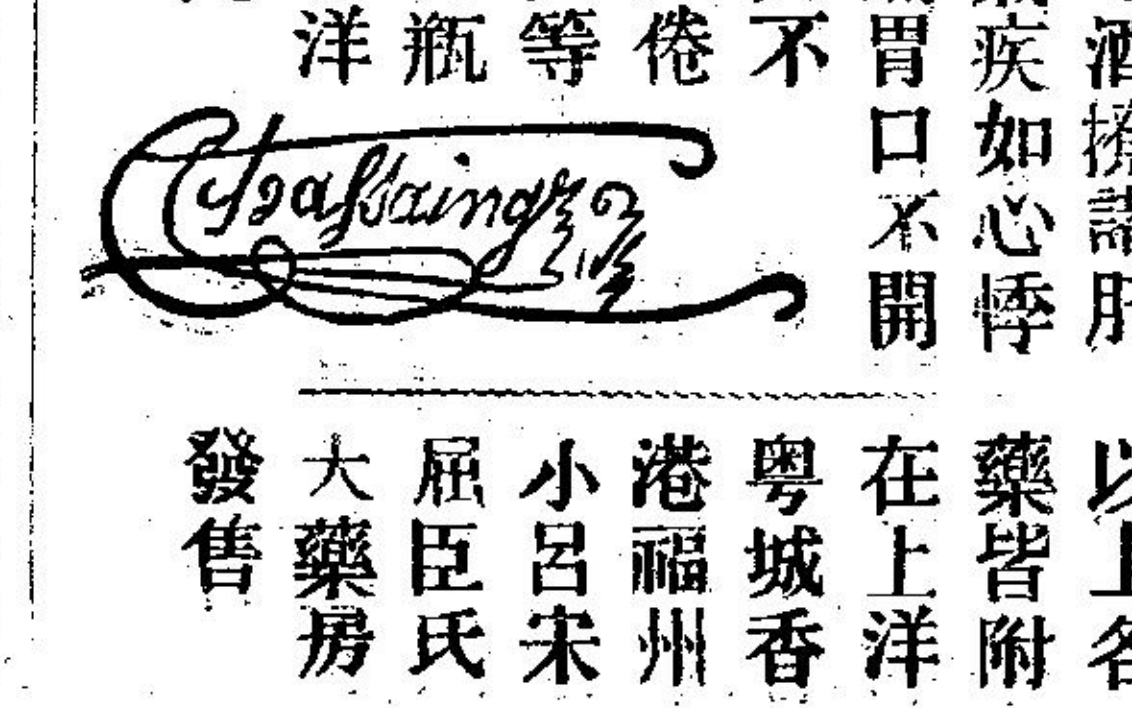 酒諸肝
疾如心悸
胃口不開
不
倦
等
瓶
洋
Chassaing
以上各
藥皆附
在上洋
粤城香
港福州
小呂宋
屈臣氏
大藥房
發售